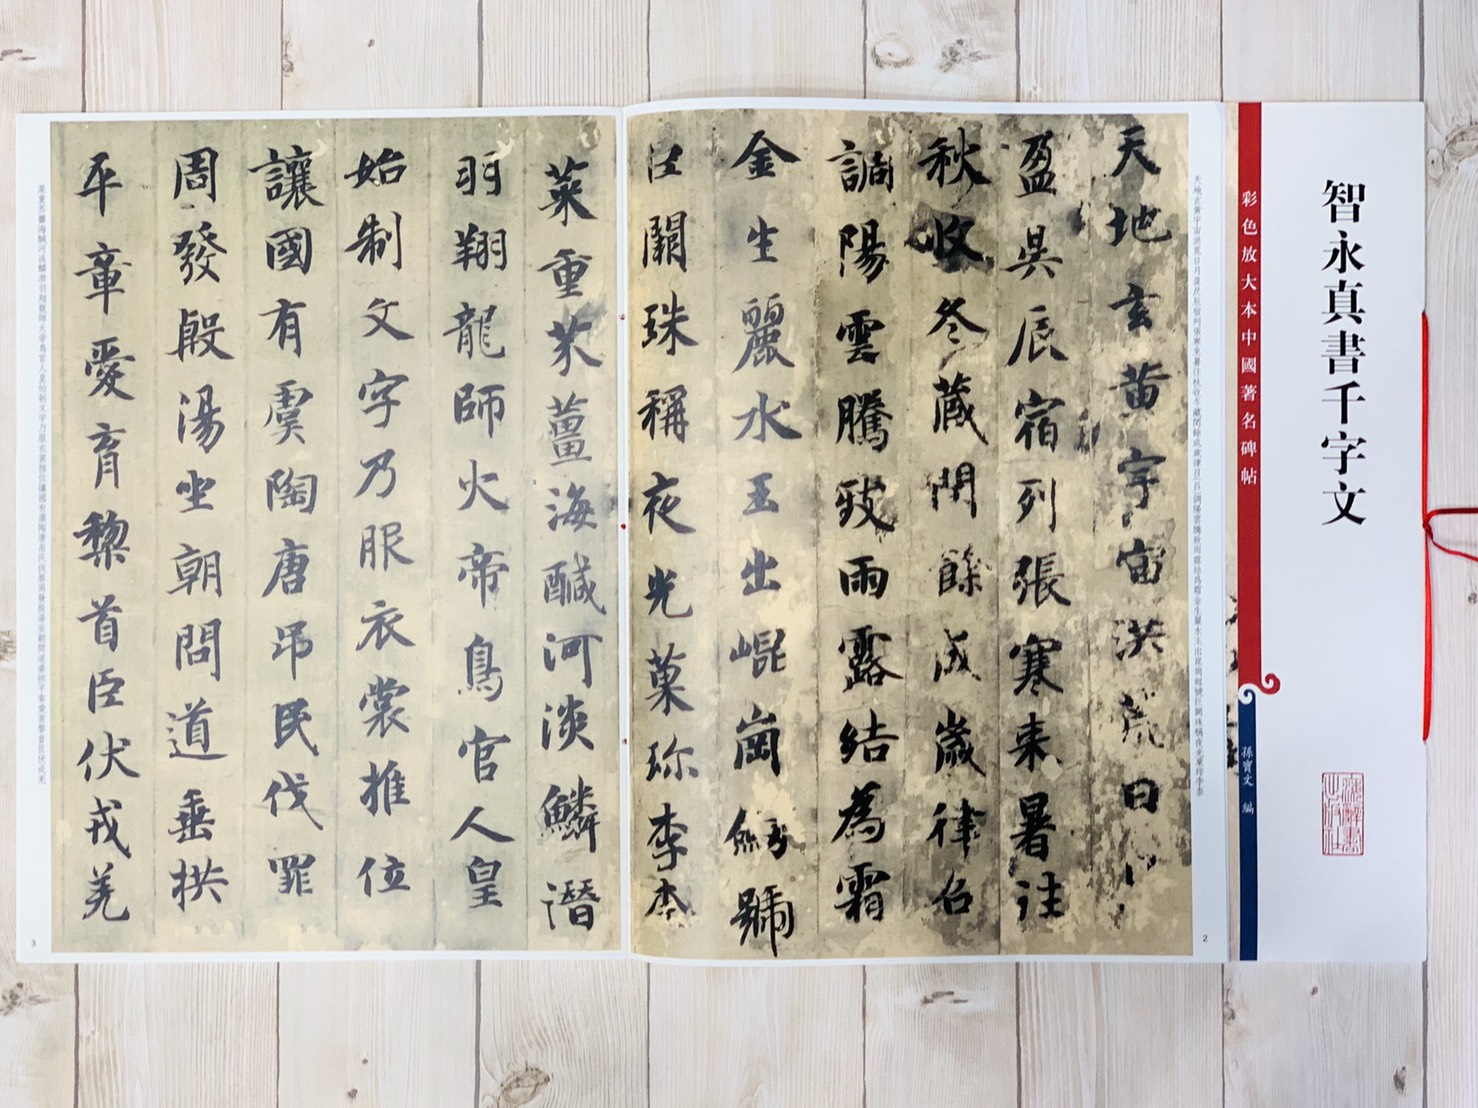 智永真書千字文
彩色放大本中國著名碑帖
孫寶文 編
天地玄黃宇宙洪荒日月盈昃辰宿列張寒來暑往秋收冬藏閏餘成歲律召調陽雲騰致雨露結爲霜金生麗水玉出崑崗劍號巨闕珠稱夜光菓珍李柰
天地玄黃宇宙洪荒日
盈昃辰宿列張寒来暑往
秋收冬蔵閏餘成歲律召
調陽雲騰致雨露結為霜
金生麗水玉出崐崗劒號
巨闕珠稱夜光菓珍李柰
2
菜重芥薑海醎河淡鱗潛
羽翔龍師火帝鳥官人皇
始制文字乃服衣裳推位
讓國有虞陶唐弔民伐罪
周發殷湯坐朝問道垂拱
平章愛育黎首臣伏戎羌
菜重芥薑海鹹河淡鱗潛羽翔龍師火帝鳥官人皇始制文字乃服衣裳推位讓國有虞陶唐弔民伐罪周發殷湯坐朝問道垂拱平章愛育黎首臣伏戎羌
3